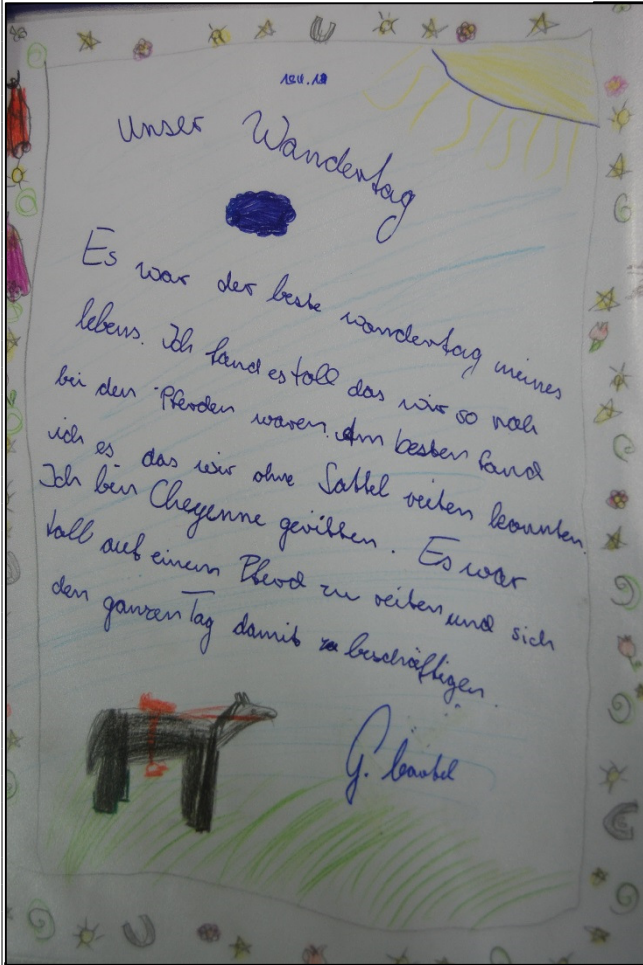 Unser Wandertag
Es war der beste wandertag meines
lebens. Ich fand es toll das wir so nah
bei den Pferden waren. Am besten fand
ich es das wir ohne Sattel reiten konnten.
Ich bin Cheyenne geritten. Es war
toll auf einem Pferd zu reiten und sich
den ganzen Tag damit zu beschäftigen.
G.